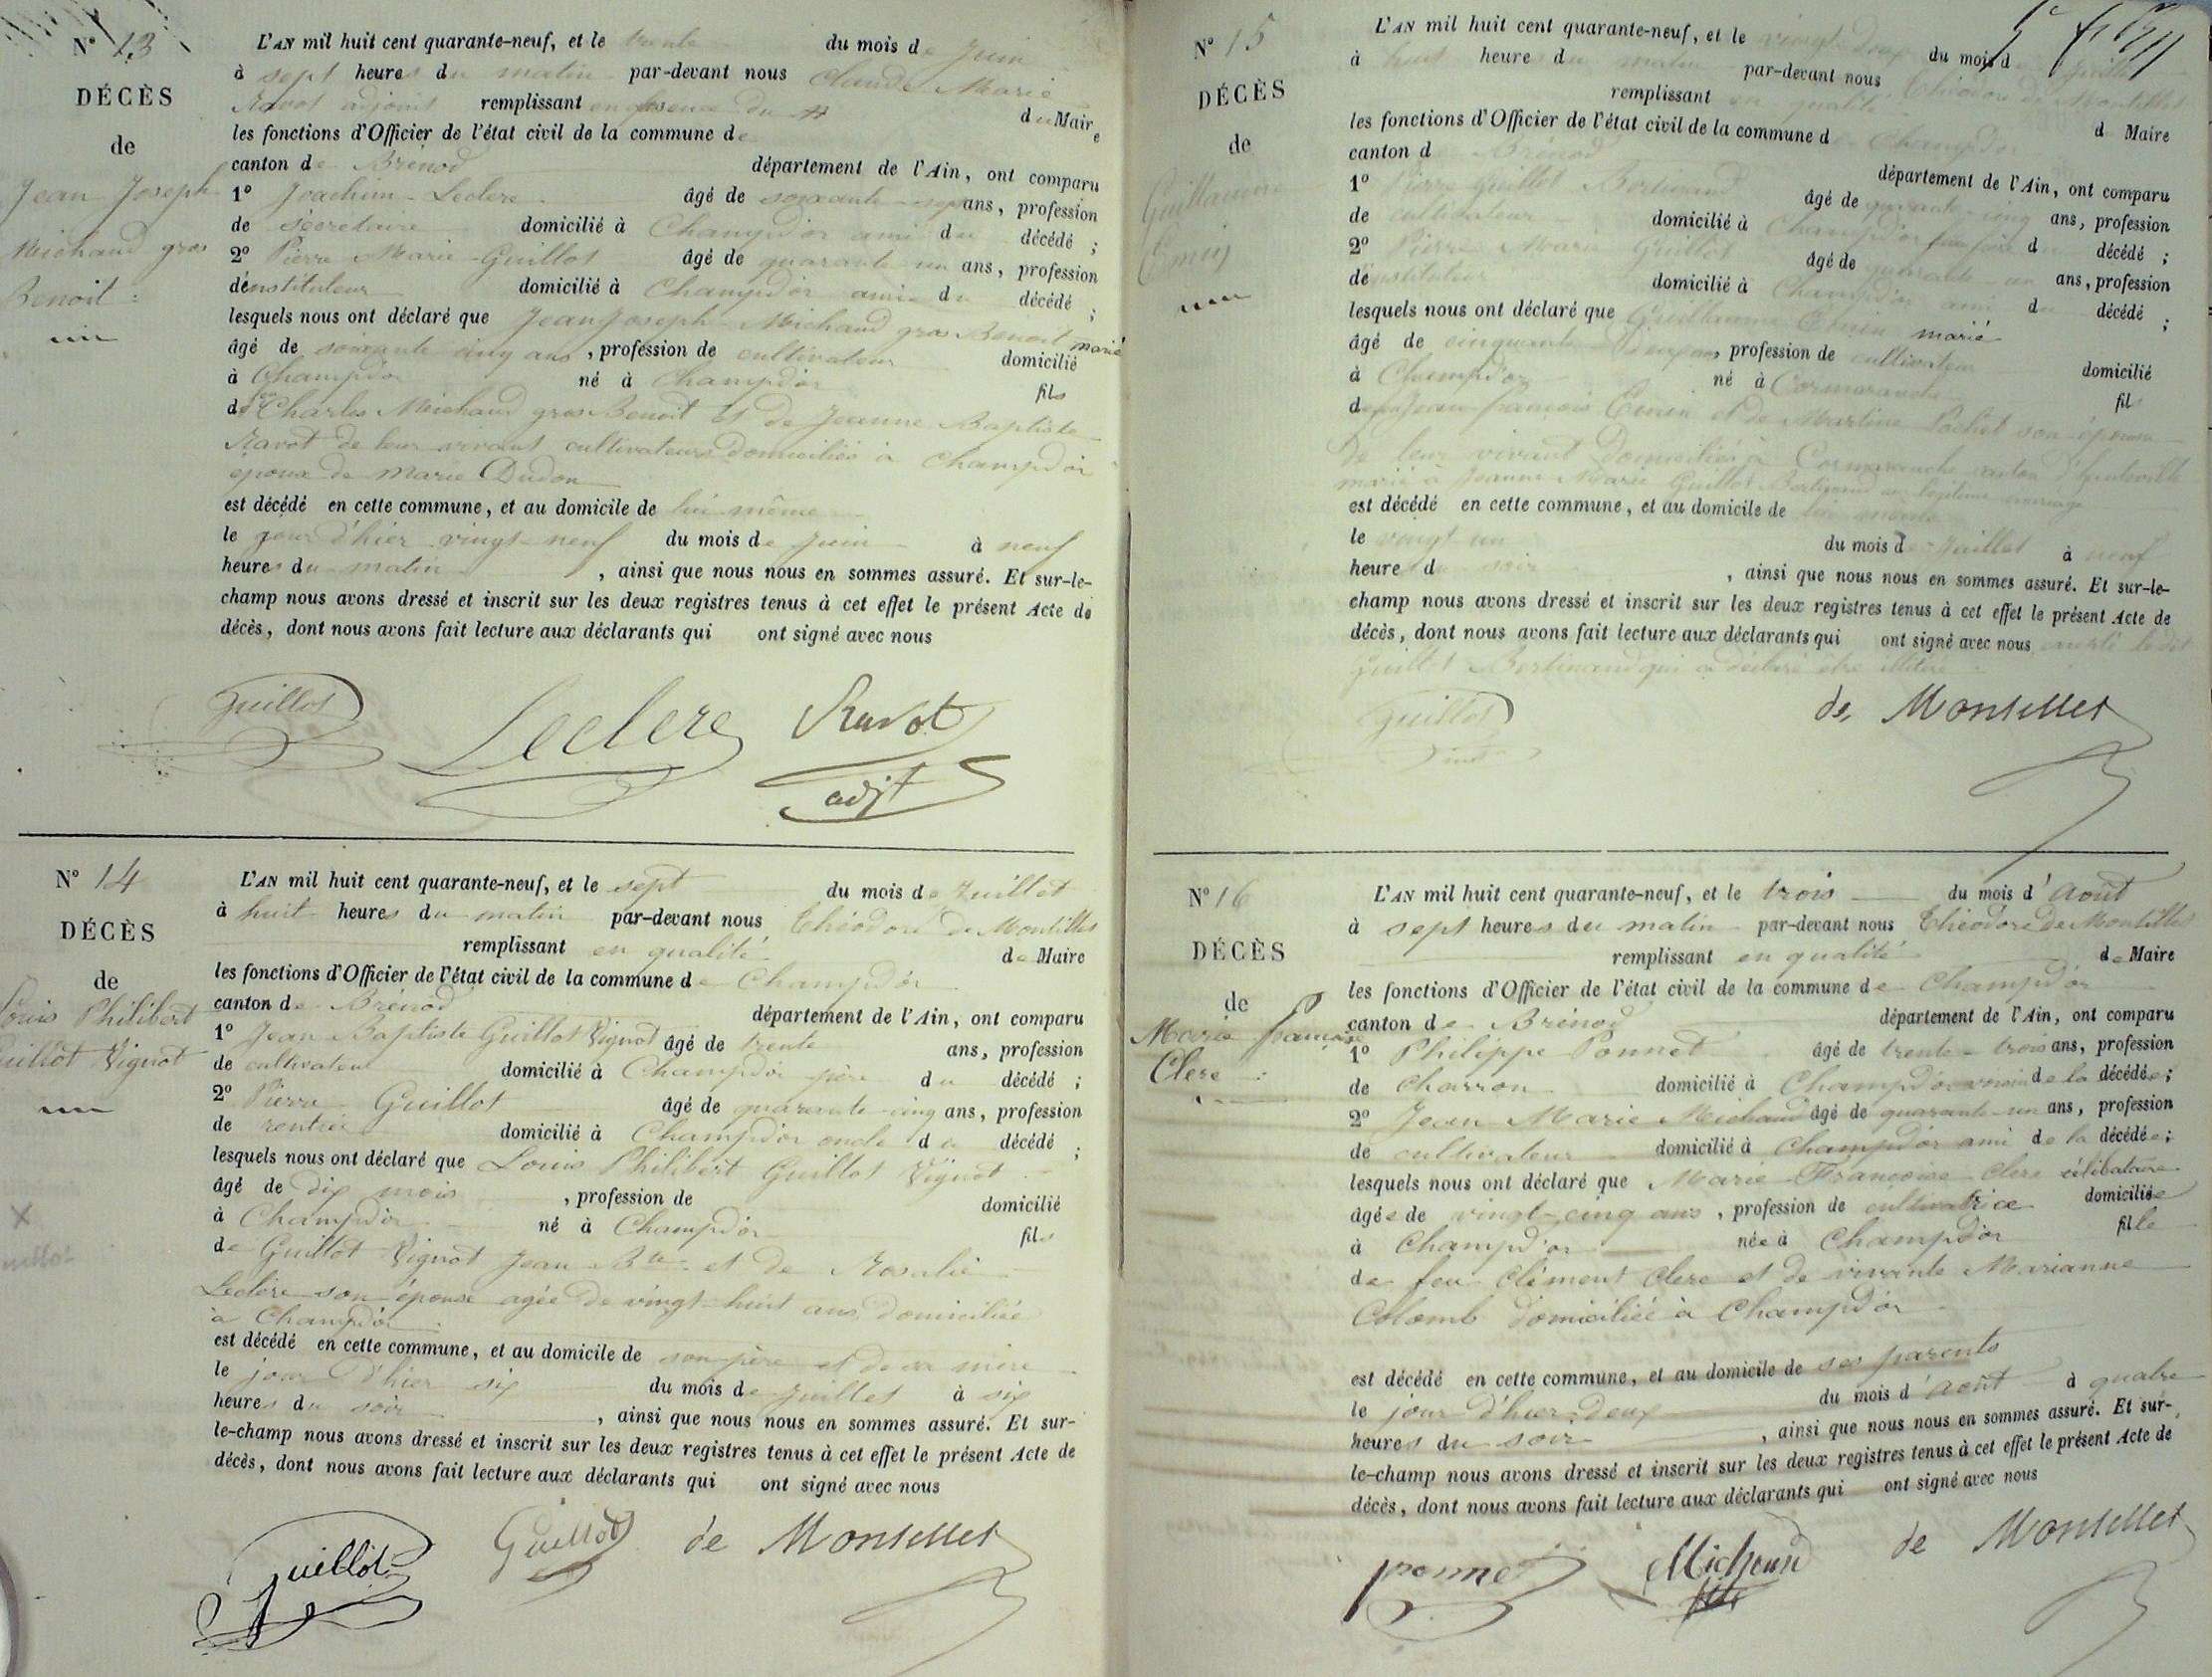 N° 13
DÉCÈS
de
Jean Joseph
Michaud gros
Benoit :
L'AN mil huit cent quarante-neuf, et le trente du mois de Juin
à sept heures du matin par-devant nous Claude Marie
Ravot adjoint remplissant en absence du Maire
les fonctions d'Officier de l'état civil de la commune de
canton de Brénod département de l'Ain, ont comparu
1° Joachim Leclere âgé de soixante-sept ans, profession
de secretaire domicilié à Champd'or ami du décédé ;
2° Pierre Marie Guillot âgé de quarante un ans, profession
d'instituteur domicilié à Champd'or ami du décédé ;
lesquels nous ont déclaré que Jean Joseph Michaud gros Benoit marié
âgé de soixante cinq ans, profession de cultivateur domicilié
à Champd'or né à Champd'or fils
de Charles Michaud gros Benoit et de Jeanne Baptiste
Ravot de leur vivant cultivateurs domiciliés à Champd'or
époux de Marie Dudon
est décédé en cette commune, et au domicile de lui même
le jour d'hier vingt-neuf du mois de Juin à neuf
heures du matin, ainsi que nous nous en sommes assuré. Et sur-le-
champ nous avons dressé et inscrit sur les deux registres tenus à cet effet le présent Acte de
décès, dont nous avons fait lecture aux déclarants qui ont signé avec nous
Guillot Leclere Ravot
adjt
N° 14
DÉCÈS
de
Louis Philibert
Guillot Vignot
L'AN mil huit cent quarante-neuf, et le sept du mois de Juillet
à huit heures du matin par-devant nous Théodore de Montillet
remplissant en qualité de Maire
les fonctions d'Officier de l'état civil de la commune de Champd'or
canton de Brénod département de l'Ain, ont comparu
1° Jean Baptiste Guillot Vignot âgé de trente ans, profession
de cultivateur domicilié à Champd'or père du décédé ;
2° Pierre Guillot âgé de quarante-cinq ans, profession
de rentier domicilié à Champd'or oncle du décédé ;
lesquels nous ont déclaré que Louis Philibert Guillot Vignot
âgé de dix mois, profession de domicilié
à Champd'or né à Champd'or fils
de Guillot Vignot Jean Bte et de Rosalie
Leclere son épouse agée de vingt-huit ans domiciliée
à Champd'or
est décédé en cette commune, et au domicile de son père et de sa mère
le jour d'hier six du mois de Juillet à six
heures du soir, ainsi que nous nous en sommes assuré. Et sur-
le-champ nous avons dressé et inscrit sur les deux registres tenus à cet effet le présent Acte de
décès, dont nous avons fait lecture aux déclarants qui ont signé avec nous
Guillot Guillot de Montillet
N° 15
DÉCÈS
de
Guillaume
Emin
L'AN mil huit cent quarante-neuf, et le vingt-deux du mois d Juillet
à huit heure du matin par-devant nous Théodore de Montillet
remplissant en qualité d Maire
les fonctions d'Officier de l'état civil de la commune d Champd'or
canton d Brénod département de l'Ain, ont comparu
1° Pierre Guillot Bertinand âgé de quarante-cinq ans, profession
de cultivateur domicilié à Champd'or d décédé ;
2° Pierre Marie Guillot âgé de quarante un ans, profession
d'instituteur domicilié à Champd'or ami d décédé ;
lesquels nous ont déclaré que Guillaume Emin marié
âgé de cinquante deux ans, profession de cultivateur domicilié
à Champd'or né à Cormaranche fils
de Jean François Emin et de Martine Pochet son épouse
de leur vivant domiciliés à Cormaranche canton d'hauteville
marié à Jeanne Marie Guillot Bertinand en legitime mariage
est décédé en cette commune, et au domicile de lui même
le vingt un du mois de Juillet à neuf
heure d soir, ainsi que nous nous en sommes assuré. Et sur-le-
champ nous avons dressé et inscrit sur les deux registres tenus à cet effet le présent Acte de
décès, dont nous avons fait lecture aux déclarants qui ont signé avec nous
Guillot Bertinand qui a déclaré etre illitéré
Guillot de Montillet
N° 16
DÉCÈS
de
Marie françoise
Clere :
L'AN mil huit cent quarante-neuf, et le trois du mois d'Août
à sept heures du matin par-devant nous Théodore de Montillet
remplissant en qualité de Maire
les fonctions d'Officier de l'état civil de la commune de Champd'or
canton de Brénod département de l'Ain, ont comparu
1° Philippe Ponnet âgé de trente-trois ans, profession
de charron domicilié à Champd'or voisin de la décédée ;
2° Jean Marie Michaud âgé de quarante-un ans, profession
de cultivateur domicilié à Champd'or ami de la décédée ;
lesquels nous ont déclaré que Marie Françoise Clere célibataire
âgée de vingt-cinq ans, profession de cultivatrice domiciliée
à Champd'or née à Champd'or fille
de feu Clément Clere et de vivante Marianne
Colomb domiciliée à Champd'or
est décédé en cette commune, et au domicile de ses parents
le jour d'hier deux du mois d'Août à quatre
heures du soir, ainsi que nous nous en sommes assuré. Et sur-
le-champ nous avons dressé et inscrit sur les deux registres tenus à cet effet le présent Acte de
décès, dont nous avons fait lecture aux déclarants qui ont signé avec nous
ponnet Michaud de Montillet